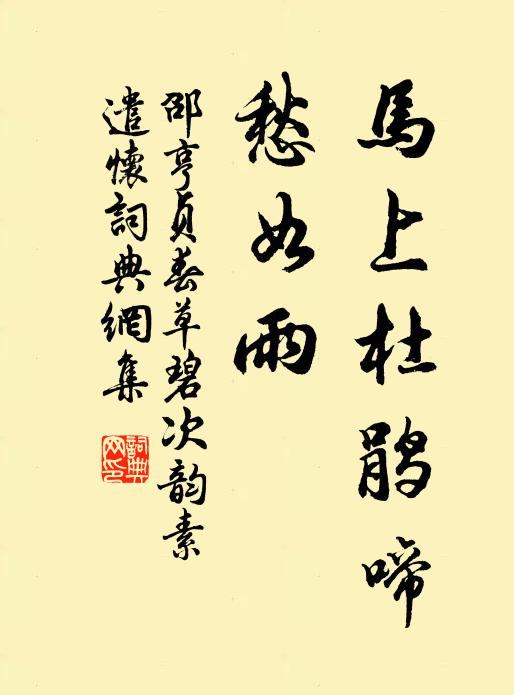 馬上杜鵑啼
愁如雨
邵亨貞春草碧次韵素
遣懷詞典網集
詞典網印